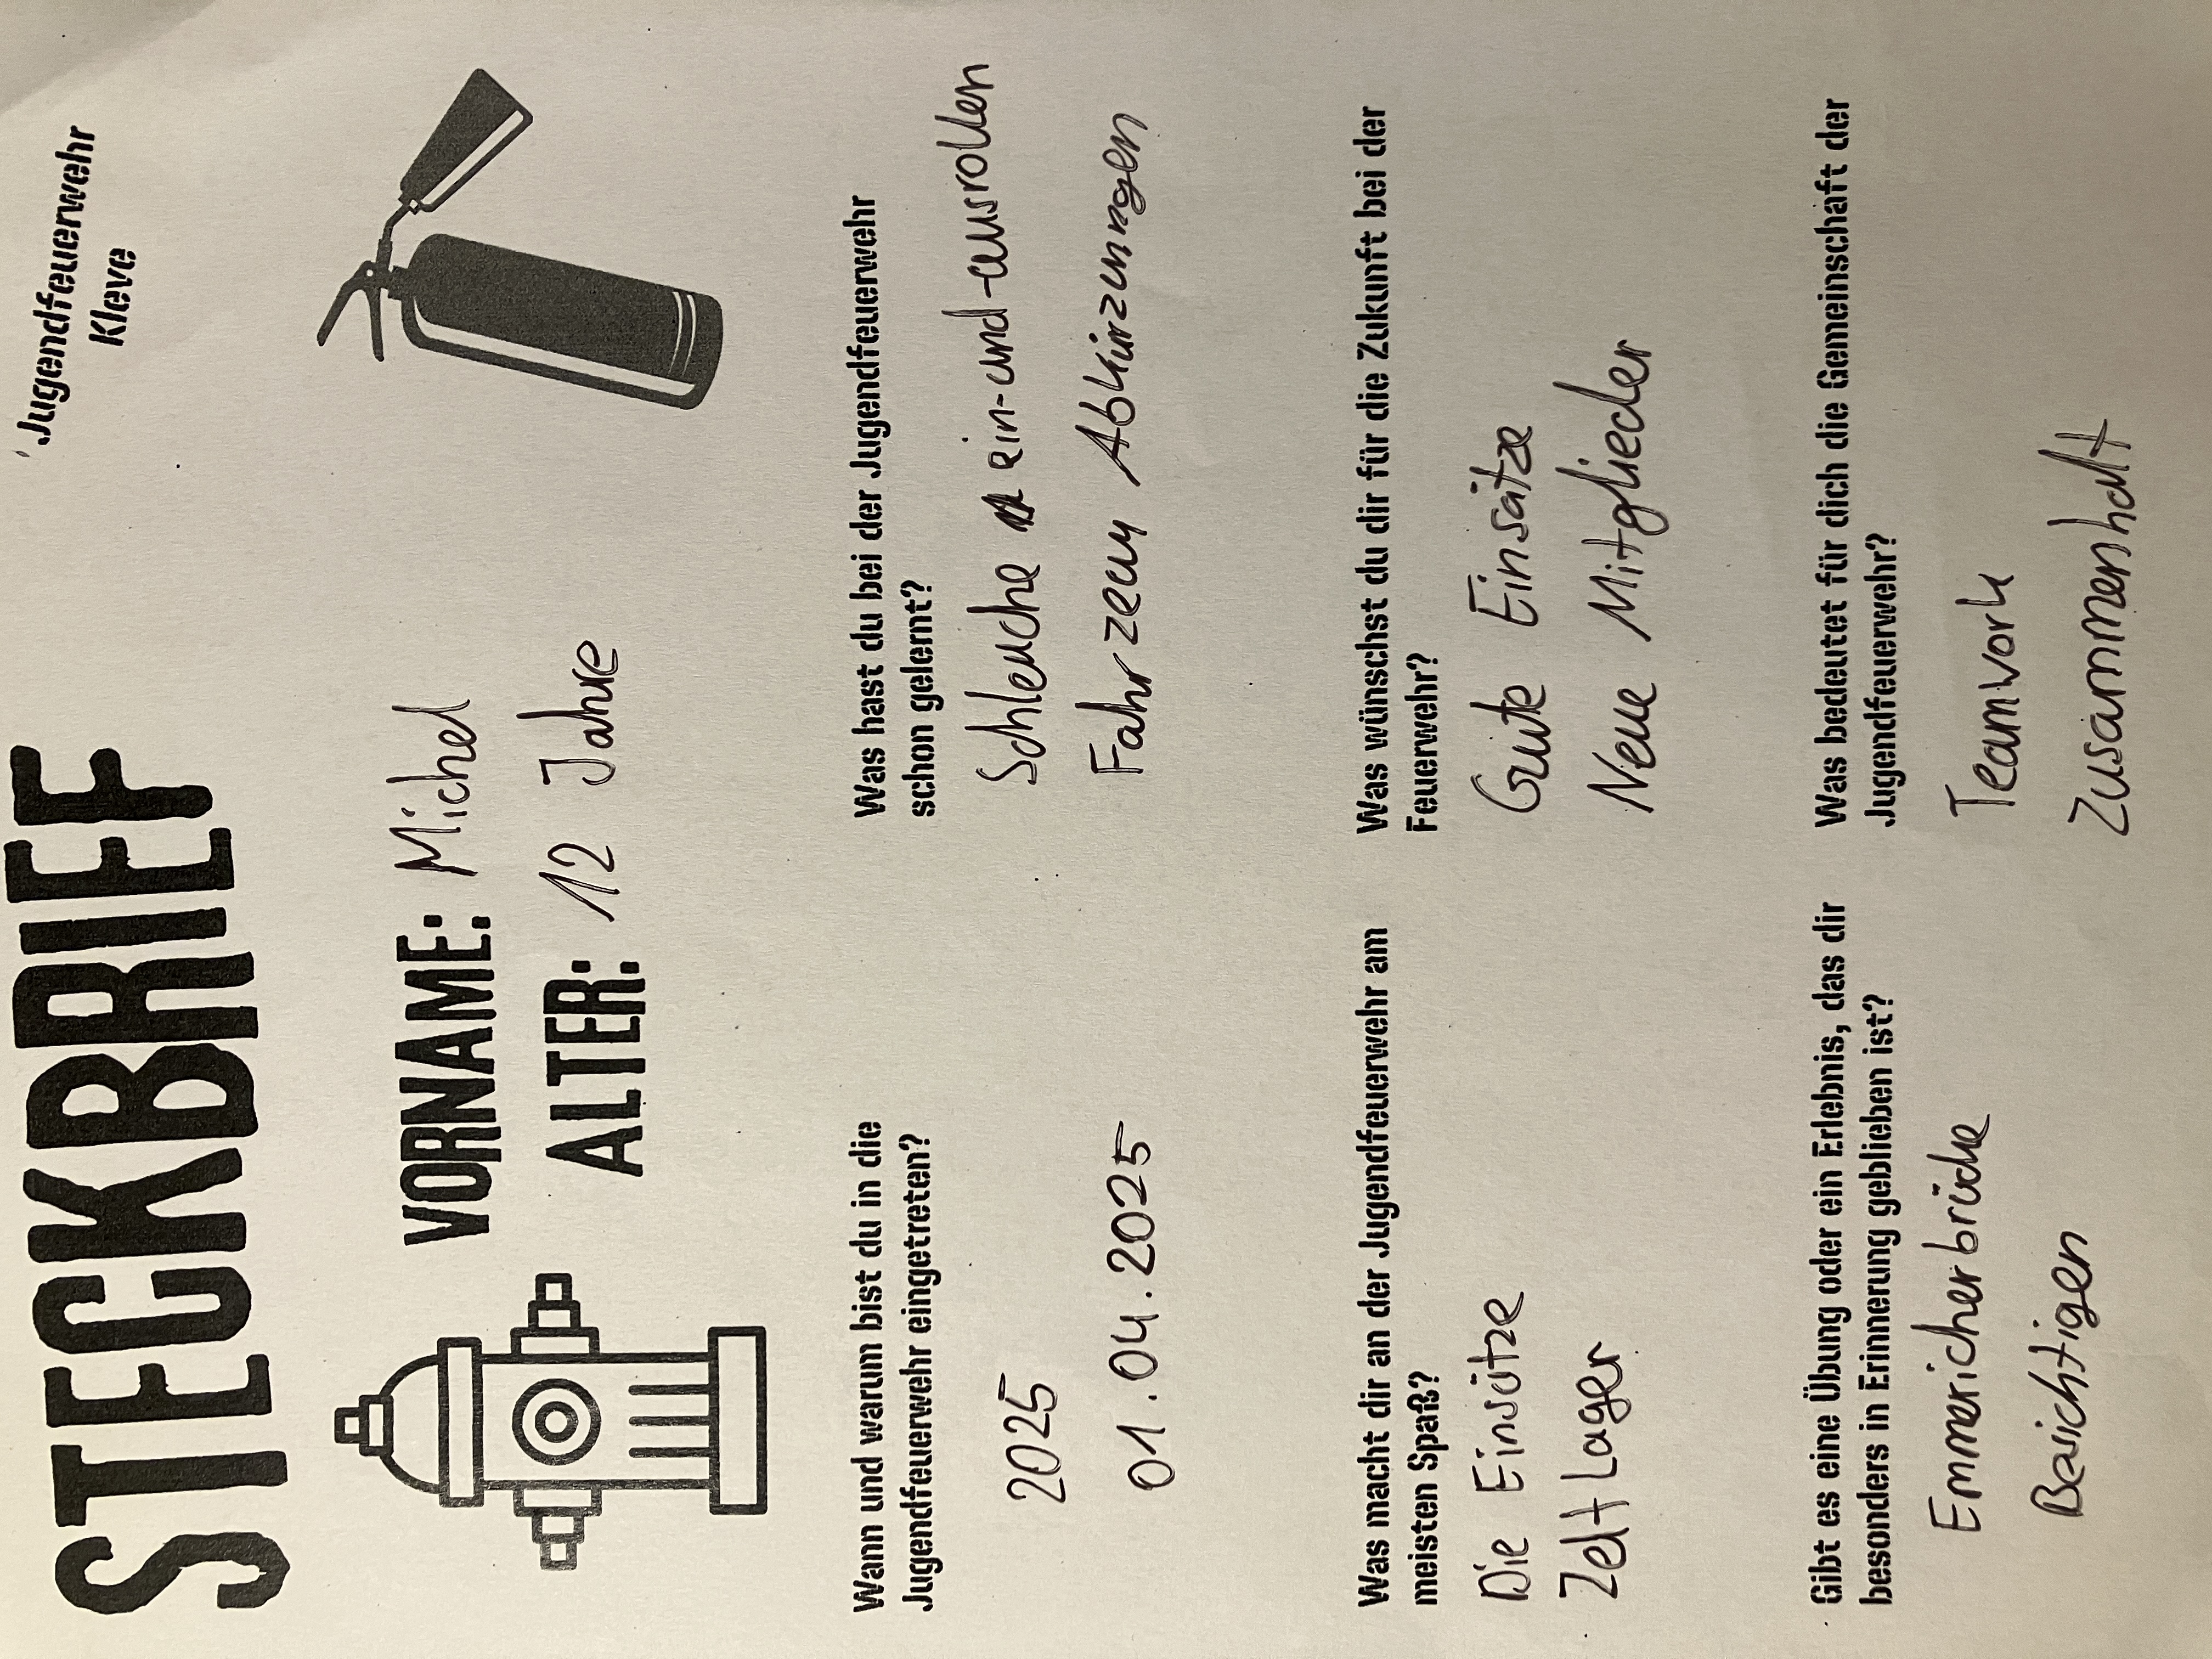 Jugendfeuerwehr
Kleve
STECKBRIEF
VORNAME: Michel
ALTER: 12 Jahre
Wann und warum bist du in die
Jugendfeuerwehr eingetreten?
2025
01.04.2025
Was hast du bei der Jugendfeuerwehr
schon gelernt?
Schleuche ein-und-ausrollen
Fahrzeug Abkürzungen
Was macht dir an der Jugendfeuerwehr am
meisten Spaß?
Die Einsätze
Zelt Lager
Was wünschst du dir für die Zukunft bei der
Feuerwehr?
Gute Einsätze
Neue Mitglieder
Gibt es eine Übung oder ein Erlebnis, das dir
besonders in Erinnerung geblieben ist?
Emmericher brücke
Besichtigen
Was bedeutet für dich die Gemeinschaft der
Jugendfeuerwehr?
Teamwork
Zusammenhalt